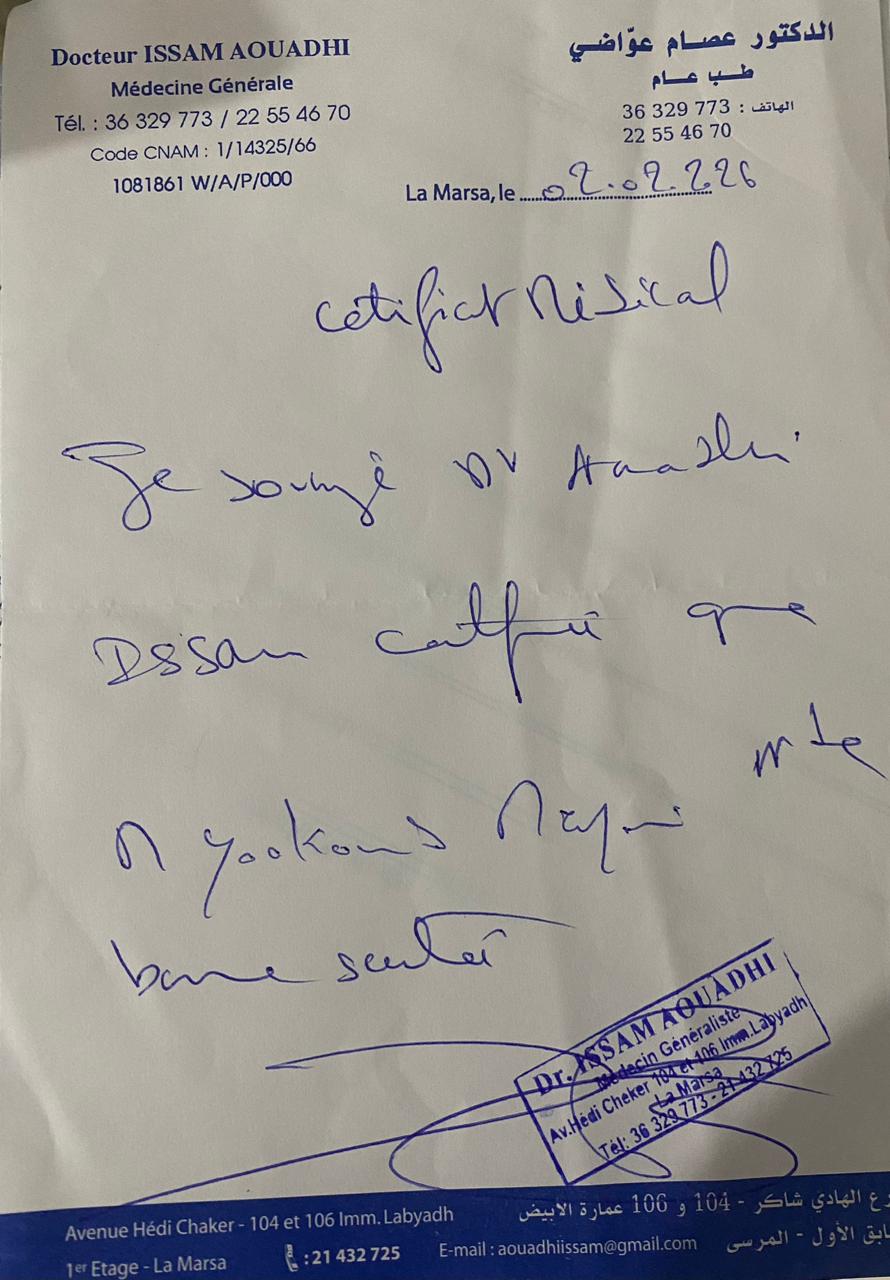 Docteur ISSAM AOUADHI
Médecine Générale
Tél. : 36 329 773 / 22 55 46 70
Code CNAM : 1/14325/66
1081861 W/A/P/000
الدكتور عصام عوّاضي
طب عام
الهاتف : 773 329 36
22 55 46 70
La Marsa, le 02.02.226
Cetificat Médical
Je sousigé Dr Aouadhi
Issam que
bonne
Dr. ISSAM AOUADHI
Médecin Généraliste
Av.Hédi Cheker 104 et 106 Imm.Labyadh
La Marsa
Tél: 36 329 773 - 21 432 725
Avenue Hédi Chaker - 104 et 106 Imm. Labyadh
1er Etage - La Marsa
: 21 432 725
E-mail : aouadhiissam@gmail.com
الهادي شاكر - 104 و 106 عمارة الأبيض
الأول - المرسى